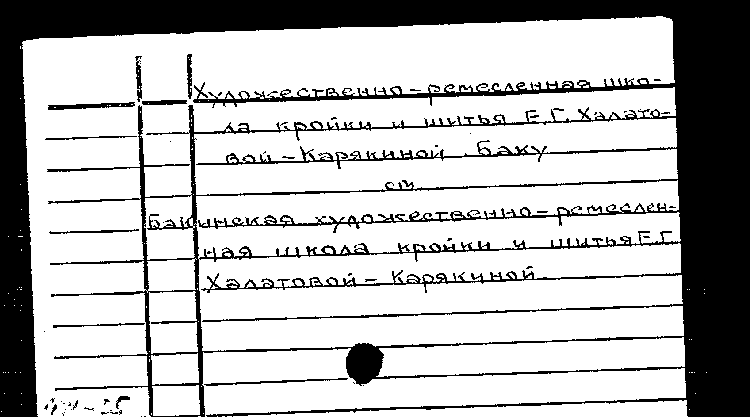 Художественно-ремесленная шко-
ла кройки и шитья Е.Г. Халато-
вой-Карякиной. Баку
см.
Бакинская художественно-ремеслен-
ная школа кройки и шитья Е.Г.
Халатовой-Карякиной.